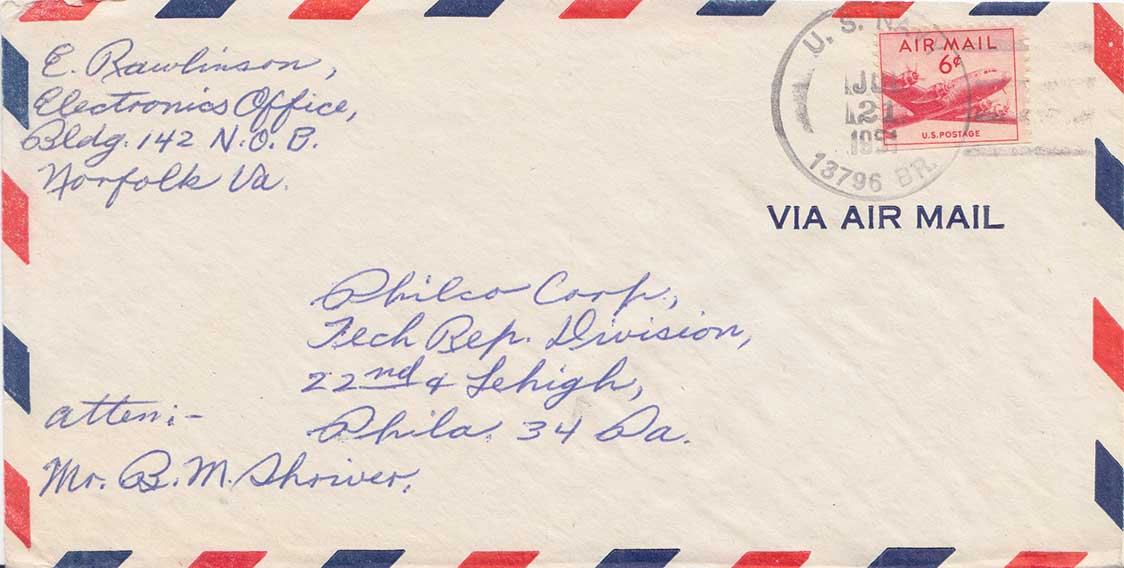 E. Rawlinson,
Electronics Office,
Bldg. 142 N.O.B.
Norfolk Va.
U.S. NAVY
JUL
21
1951
13796 BR.
AIR MAIL
6¢
U.S. POSTAGE
VIA AIR MAIL
Philco Corp.,
Tech Rep. Division,
22nd & Lehigh,
Phila. 34 Pa.
atten:-
Mr. B. M. Shriver.